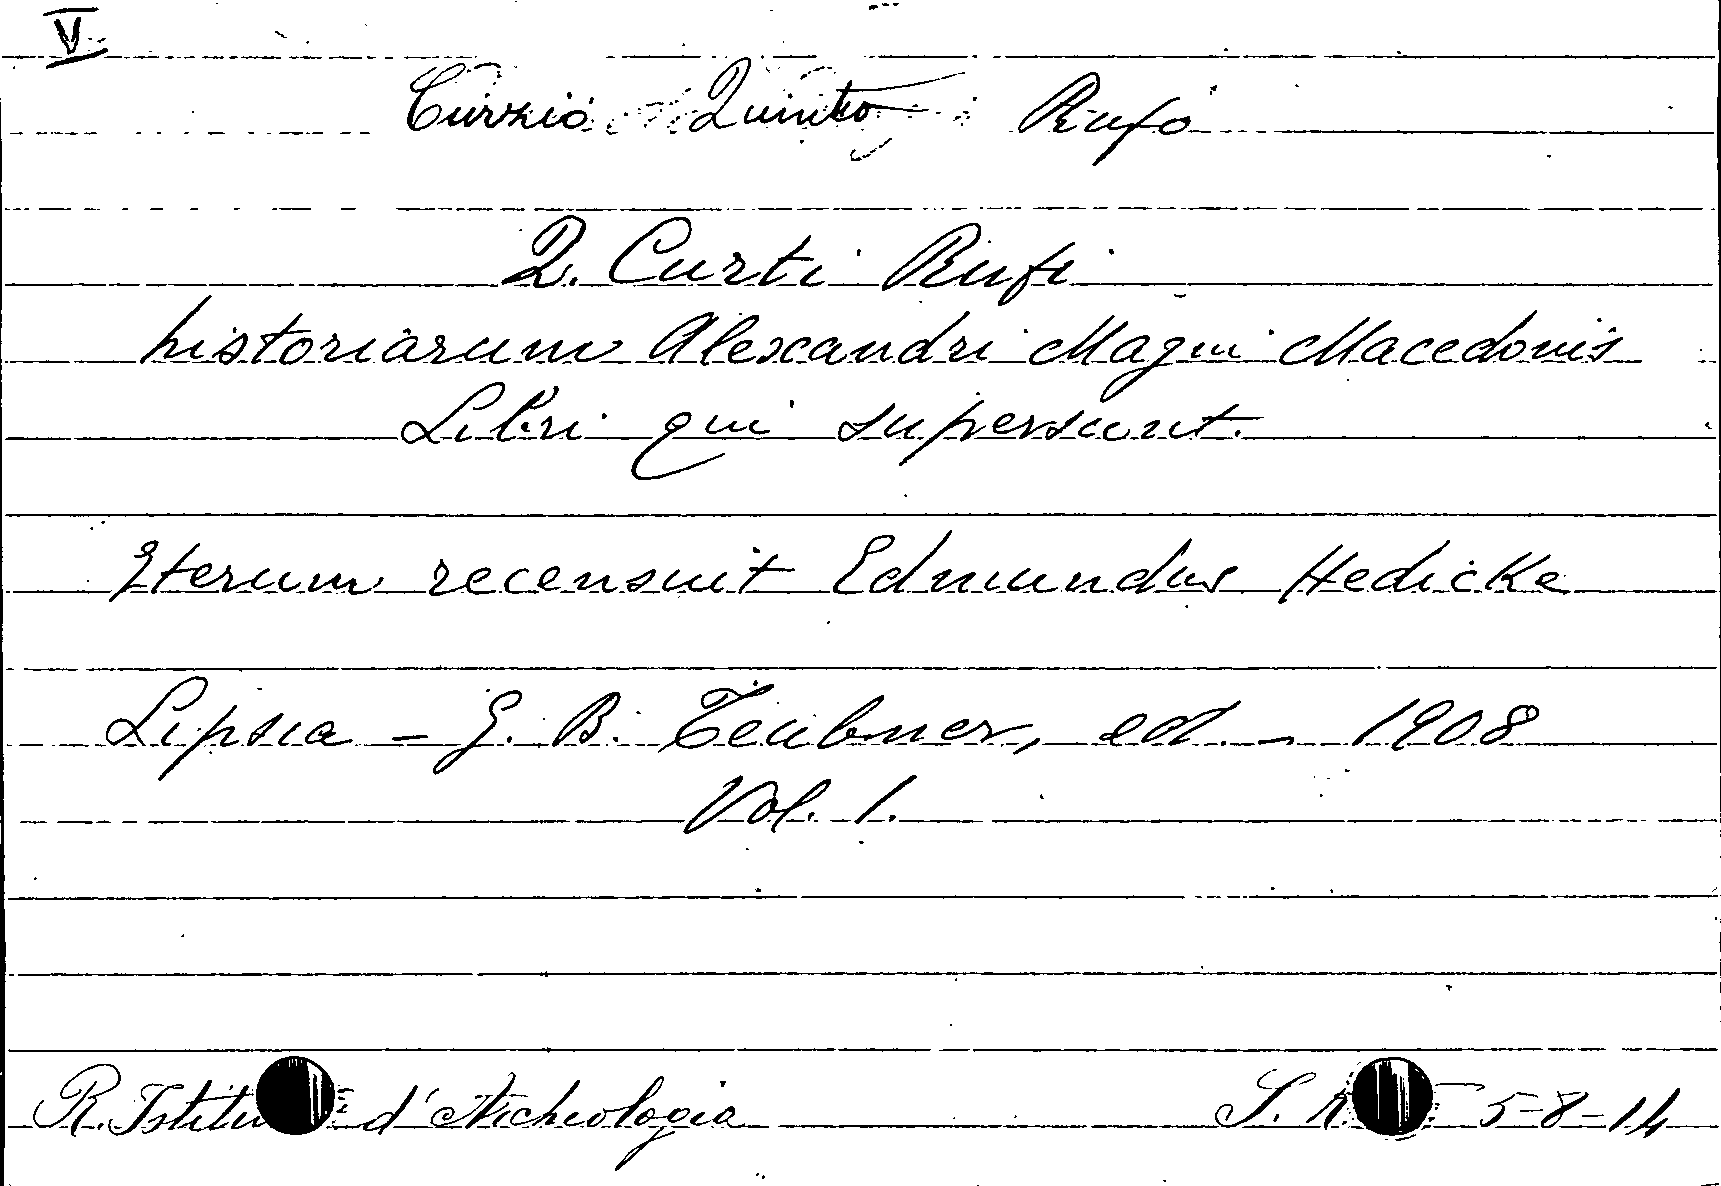 V
Curzio Quinto Rufo
Q. Curti Rufi
historiarum Alexandri Magni Macedonis
Libri qui supersunt.
Iterum recensuit Edmundus Hedicke
Lipsia - G. B. Teubner, ed. - 1908
Vol. 1.
R. d'Archeologia
S. 5-8-14